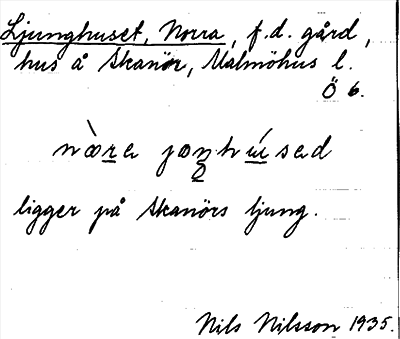 Ljunghuset, Norra, f.d. gård,
hus å Skanör, Malmöhus l.
Ö 6.
ligger på Skanörs ljung.
Nils Nilsson 1935.